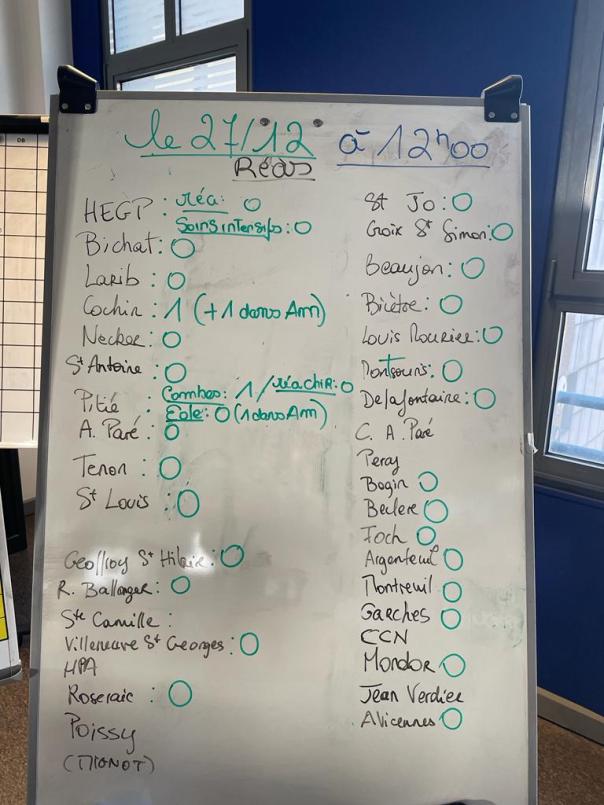 le 27/12 à 12h00
Réas
HEGP : réa: 0
Soins intensifs: 0
Bichat: 0
Larib : 0
Cochin : 1 (+1 dans Am)
Necker : 0
St Antoine : 0
Pitié : Combes: 1 / réachir: 0
Eole: 0 (1 dans Am)
A. Paré : 0
Tenon : 0
St Louis : 0
Geoffroy St Hilaire: 0
R. Ballanger: 0
Ste Camille :
Villeneuve St Georges : 0
HPA
Roseraie : 0
Poissy
(MIGNOT)
St Jo: 0
Croix St Simon: 0
Beaujon: 0
Bicêtre: 0
Louis Mourier: 0
Montsouris: 0
Delafontaine: 0
C. A. Paré
Peray
Begin 0
Beclere 0
Foch 0
Argenteuil 0
Montreuil 0
Garches 0
CCN
Mondor 0
Jean Verdier
Avicennes 0